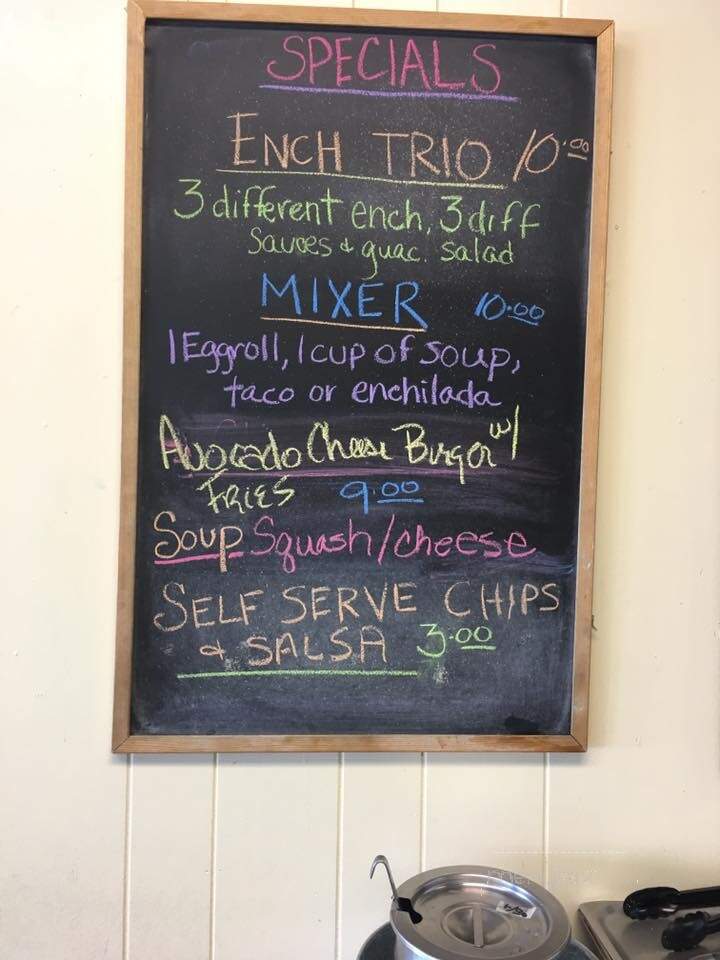 SPECIALS
ENCH TRIO 10.00
3 different ench, 3 diff
Sauces & guac. salad
MIXER 10.00
1 Eggroll, 1 cup of soup,
taco or enchilada
Avocado Cheese Burger w/
FRIES 9.00
Soup Squash/cheese
SELF SERVE CHIPS
& SALSA 3.00